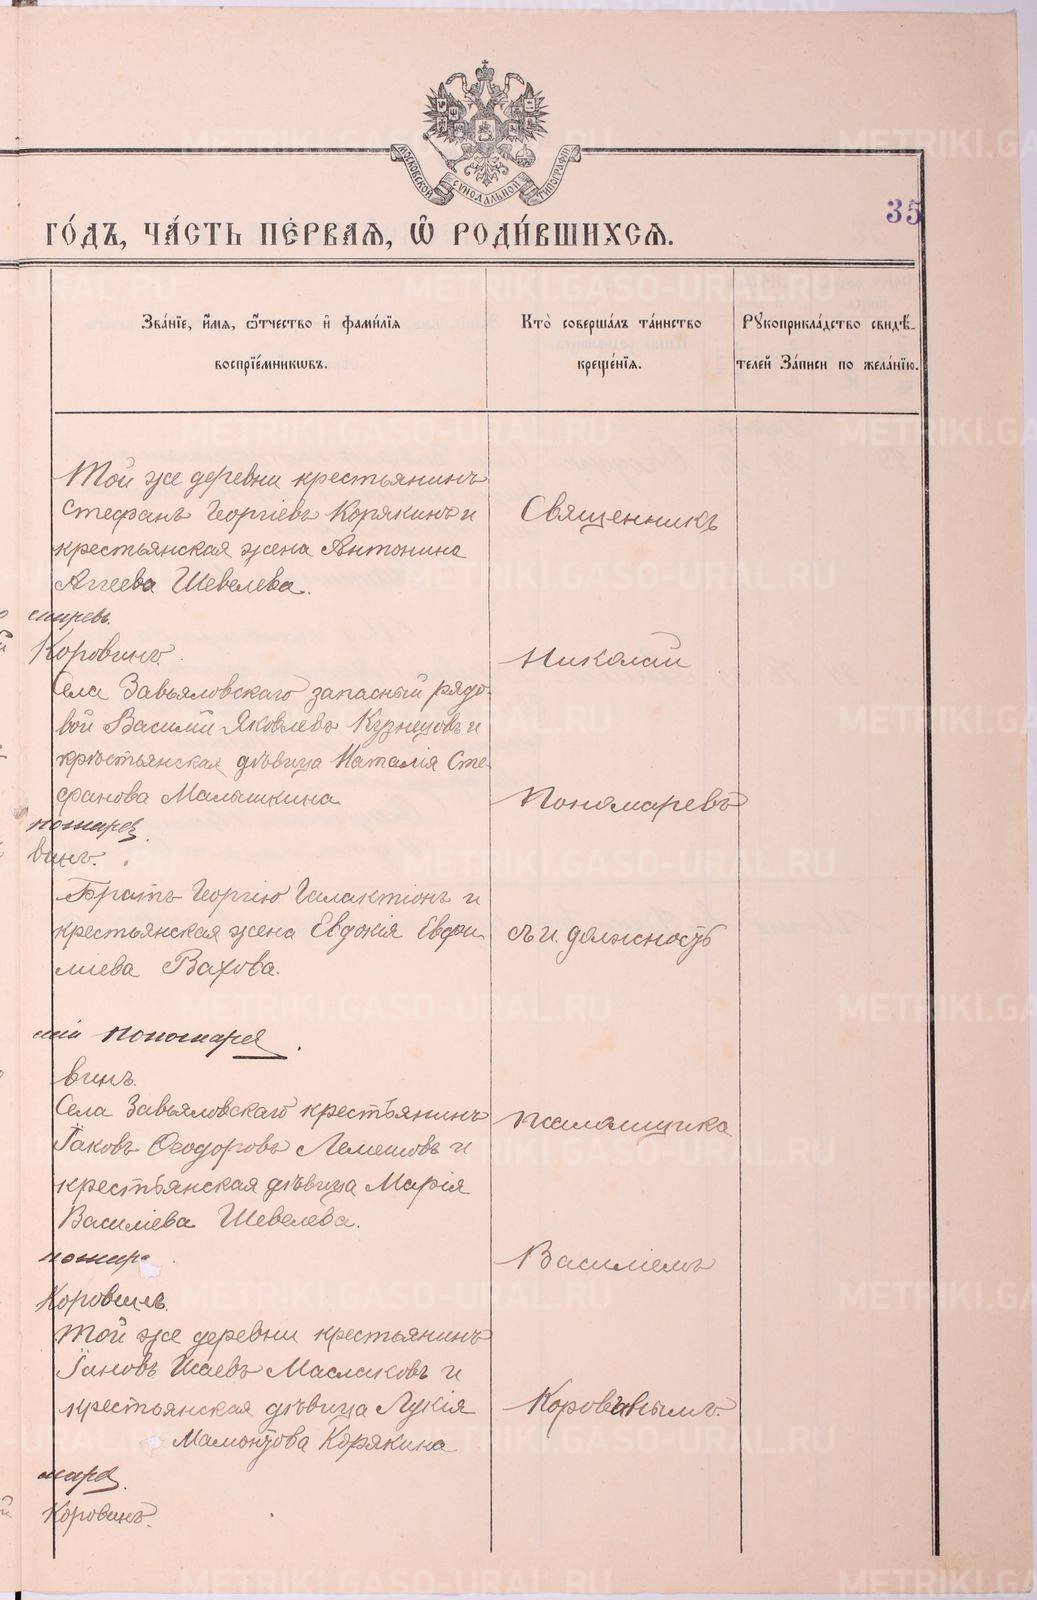 МОСКОВСКОЙ СѴНОДАЛЬНОЙ ТИПОГРАФІИ
35
ГО́ДЪ, ЧА́СТЬ ПЕ́РВАѦ, Ѡ҆ РОДИ́ВШИХСѦ.
Зва́нїе, и҆́мѧ, ѻ҆́тчество и҆ фами́лїѧ
воспрїе́мникѡвъ.
Кто̀ соверша́лъ та́инство
креще́нїѧ.
Рꙋкоприкла́дство свидѣ́-
телей За́писи по жела́нїю.
Той же деревни крестьянинъ
Стефанъ Георгіевъ Корякинъ и
крестьянская жена Антонина
Аггеева Шевелева.
Коровинъ.
Села Завьяловскаго запасный рядо-
вой Василій Яковлевъ Кузнецовъ и
крестьянская дѣвица Наталія Сте-
фанова Малышкина
винъ.
Братъ Георгію Галактіонъ и
крестьянская жена Евдокія Евфи-
міева Вахова.
Пономарев
винъ.
Села Завьяловскаго крестьянинъ
Іаковъ Ѳеодоровъ Лемешовъ и
крестьянская дѣвица Марія
Василіева Шевелева.
Коровинъ.
Той же деревни крестьянинъ
Іаковъ Исаевъ Маслаковъ и
крестьянская дѣвица Лукія
Мамонтова Корякина
марев
Коровинъ.
Священникъ
Николай
Пономаревъ
съ и. должность
псаломщика
Василіемъ
Коровинымъ.
METRIKI.GASO-URAL.RU